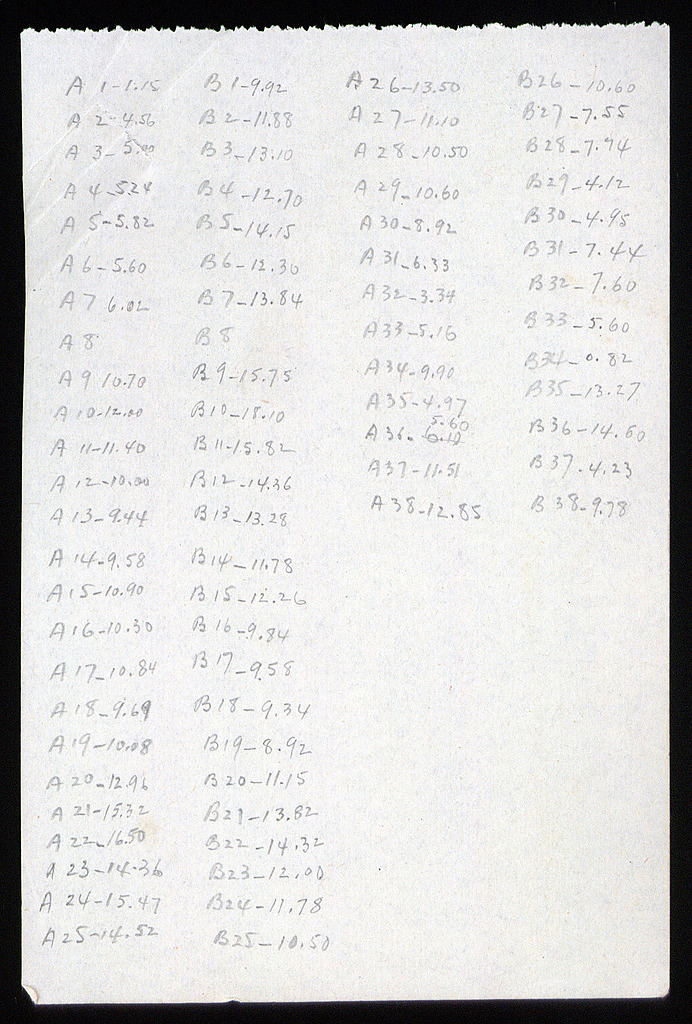 A 1-1.15
A 2-4.56
A 3-5.00
A 4-5.24
A 5-5.82
A 6-5.60
A 7 6.02
A 8
A 9 10.70
A 10-12.00
A 11-11.40
A 12-10.00
A 13-9.44
A 14-9.58
A 15-10.90
A 16-10.30
A 17-10.84
A 18-9.69
A 19-10.08
A 20-12.96
A 21-15.32
A 22-16.50
A 23-14.36
A 24-15.47
A 25-14.52
B 1-9.92
B 2-11.88
B 3-13.10
B 4-12.70
B 5-14.15
B 6-12.30
B 7-13.84
B 8
B 9-15.75
B 10-18.10
B 11-15.82
B 12-14.36
B 13-13.28
B 14-11.78
B 15-12.26
B 16-9.84
B 17-9.58
B 18-9.34
B 19-8.92
B 20-11.15
B 21-13.82
B 22-14.32
B 23-12.00
B 24-11.78
B 25-10.50
A 26-13.50
A 27-11.10
A 28-10.50
A 29-10.60
A 30-8.92
A 31-6.33
A 32-3.34
A 33-5.16
A 34-9.90
A 35-4.97
5.60
A 36-
A 37-11.51
A 38-12.85
B 26-10.60
B 27-7.55
B 28-7.74
B 29-4.12
B 30-4.95
B 31-7.44
B 32-7.60
B 33-5.60
B 34-0.82
B 35-13.27
B 36-14.60
B 37-4.23
B 38-9.78